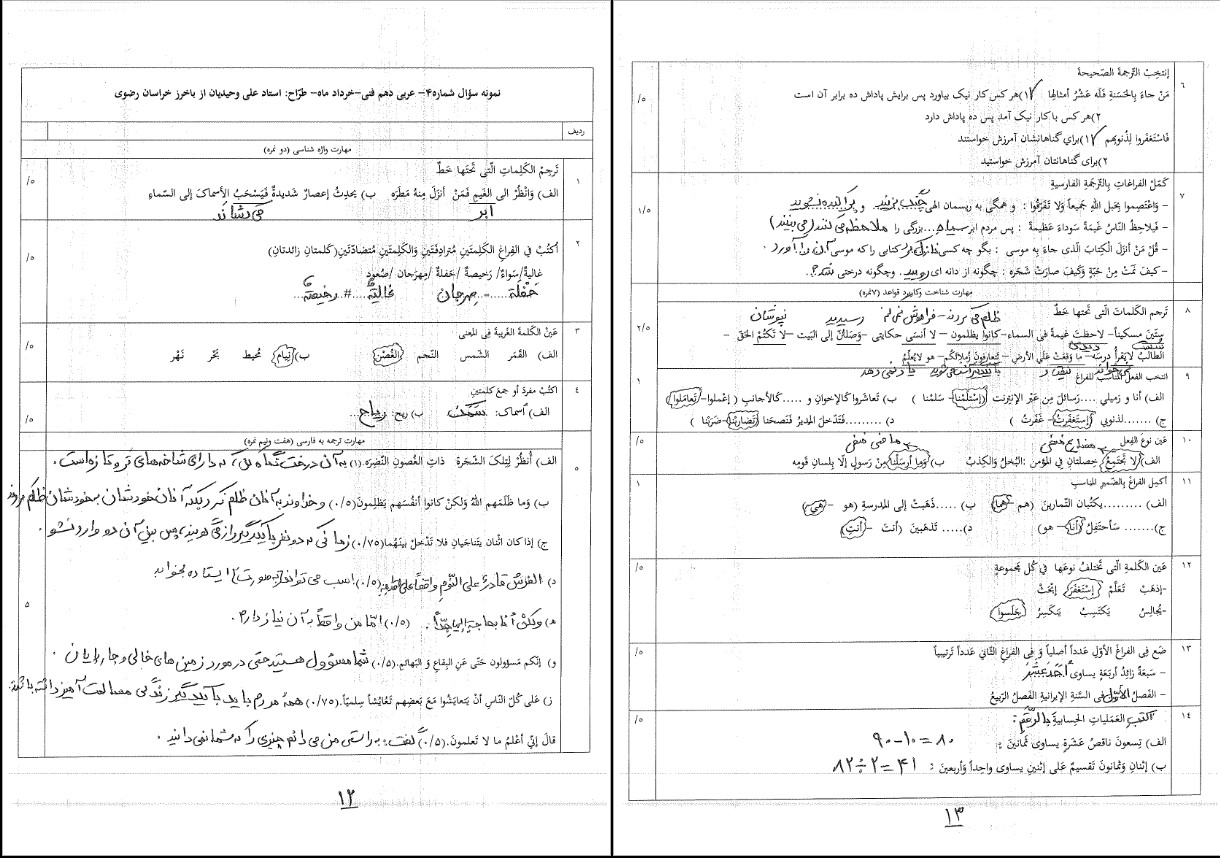 نمونه سؤال شماره۴- عربی دهم فنی-خرداد ماه- طرّاح: استاد علی وحیدیان از باخرز خراسان رضوی
ردیف
مهارت واژه شناسی (دو نمره)
۱
تَرجِمِ الکَلِماتِ الّتی تَحتَها خَطٌّ
الف) وَانْظُرْ الی الغَیمِ فَمَنْ أنزَلَ مِنهُ مَطَرَهُ ب) یحدِثُ إعصارٌ شَدیدةٌ فَیَسْحَبُ الأسماکَ إلی السّماءِ
ابر می کشاند
/۵
۲
اُکتُبْ فی الفِراغِ الکَلِمَتَینِ مُتَرادِفَتَینِ وَالکَلِمَتَینِ مُتضادّتَینِ(کلمتانِ زائدتانِ)
غالیةٌ/ سَواءٌ/ رَخیصةٌ /حَفلةٌ /مِهرَجان /صُعود
حَفلَة ....=.. مِهرجان غالیَةٌ ....#.. رخیصَةٌ...
/۵
۳
عَیّنِ الکَلِمةَ الغَریبةَ فِی المَعنی
الف) القَمَر الشَمس النّجم الغُصْن ب) نِیام مُحیط بَحْر نَهْر
/۵
۴
اکتُبْ مفردَ أو جمعَ کلمتینِ
الف) أسماک: سَمَک ب) ریح: ریاح...
/۵
مهارت ترجمه به فارسی (هفت ونیم نمره)
۵
الف) اُنظُرْ لِتِلکَ الشَجَرَة ذاتِ الغُصونِ النَضِرَه. (۱) به آن درخت نگاه کن که دارای شاخه‌های تر و تازه است.
ب) وَما ظَلَمَهم اللهُ وَلکنْ کانوا أنفُسَهم یَظلِمونَ(۰/۵) و خداوند به آنان ظلم نکرد بلکه آنان خودشان به خودشان ظلم می کردند
ج) إذا کان اثْنان یَتَناجَیانِ فلا تَدخُلْ بینَهُما(۰/۷۵) زمانی که دو نفر با یکدیگر راز می گویند، پس بین آن دو وارد نشو.
د) الفَرَسُ قادرةٌ علی النَّومِ واقفةً علی أقدامها(۰/۵) اسب می تواند به صورت ایستاده بخوابد
ه) ولکنْ أنا بحاجة إلیها جدّاً. (۰/۵) امّا من واقعاً به آن نیاز دارم.
و) إنّکم مَسؤولون حَتّی عَنِ البِقاعِ وَ البَهائمِ.(۰/۵) شما مسؤول هستید حتی در مورد زمین های خالی و چارپایان.
ز) عَلی کُلّ النّاسِ أنْ یَتعایَشُوا مَعَ بَعضِهِم تَعایُشاً سِلمیّاً.(۰/۷۵) همهٔ مردم باید با یکدیگر زندگی مسالمت آمیز داشته باشند.
قالَ إنّی أعْلَمُ ما لا تَعلمونَ.(۰/۵) گفت: به راستی من می دانم چیزی را که شما نمی دانید.
۵
۱۲
۶
اِنتَخِبْ التَّرجمةَ الصّحیحةَ
مَنْ جاءَ بِالحَسَنةِ فَلَه عَشْرُ أمثالِها ۱)هر کس کار نیک بیاورد پس برایش پاداش ده برابر آن است
۲)هر کس با کار نیک آمد پس ده پاداش دارد
فَاسْتَغفَروا لِذُنوبِهِم ۱)برای گناهانشان آمرزش خواستند
۲)برای گناهانتان آمرزش خواستید
/۵
۷
کَمّلْ الفراغاتِ بِالتَّرجَمَةِ الفارسیةِ
- وَاعْتَصِموا بِحَبلِ اللهِ جَمیعاً وَلا تَفَرّقُوا : و همگی به ریسمان الهی چنگ بزنید و پراکنده نشوید
- فَیلاحِظُ النّاسُ غَیمَةً سَوداءَ عَظیمَةً : پس مردم ابر سیاه...بزرگی را ملاحظه می کنند (می بینند)
- قُلْ مَنْ أنزَلَ الکِتابَ الّذی جاءَ بِه موسی : بگو چه کسی نازل کرد کتابی را که موسی آن را آورد.
- کَیفَ نَمَتْ مِنْ حَبّةٍ وَکَیفَ صارَتْ شَجَرَه : چگونه از دانه ای رویید. وچگونه درختی شد؟.
۱/۵
مهارت شناخت وکاربرد قواعد (۷نمره)
۸
تَرجم الکلماتَ الّتی تَحتَها خطٌّ ظلم می کردند- فراموش نمی کنم رسیدید نپوشان
میّتین مسکیناً- لاحظتَ غیمةً فی السماء- کانوا یظلمون- لا أنسَی حکایتی -وَصَلتُنّ إلی البَیت -لا تَکتُم الحَقّ -
الطالبُ لایَقرأُ درسَه- ما وَقفتَ عَلَی الأرضِ- تَتعارفونَ زُملائَکم- هو لایُعلِّمُ
۲/۵
۹
انتخب الفعلَ المُناسبَ لِلفراغِ
الف) أنا و زمیلي ....رَسائلَ مِن عَبرِ الإنترنت (اِستَلَمْنا- سَلمْنا ) ب) تَعاشَروا کَالإخوانِ و .....کَالأجانبِ ( إعْمَلوا- تَعامَلوا)
ج) ........لذنوبي (اِستَغفَرتُ- غَفَرتُ ) د) ..........فَتَدخّلَ المدیرُ فَنَصحَنا (تَضارَبْنا- ضَرَبْنا )
۱
۱۰
عَین نوعَ الفِعل مضارع منفی ما ضی منفی
الف)لا تَجتَمِعُ خِصلتانِ في المؤمن :البُخلُ وَالکِذبُ ب)وَما أرسَلْنا مِنْ رَسولٍ إلّا بِلسانِ قَومِه
/۵
۱۱
أکمِلْ الفراغَ بِالضّمیرِ المُناسبِ
الف) ..........یکتُبانِ التَّمارینَ (هم -هُما) ب) .....ذَهَبَتْ إلی المَدرسةِ (هو -هِیَ)
ج)........ سَأحتَفِلُ (أنا- هو) د)..... تَذهَبینَ (أنتَ -أنتِ)
۱
۱۲
عَیّن الکَلمةَ الّتی تَختلفُ نوعُها فی کُلّ مجموعةٍ
-إذهَبْ تَعَلَّمْ إستَغفَرَ إبْحَثْ
-یُجالِسُ یَکتَسِبُ یَنکَسِرُ جَلَسوا
/۵
۱۳
ضَع فِی الفراغِ الأوّلِ عَدداً أصلیاً وَ فِی الفَراغِ الثّانی عَدداً تَرتیبیاً
- سَبعَةٌ زائدُ أربَعَةٍ یساوی أحَدَ عَشَرَ
- الفَصلُ الأوّل فی السَّنةِ الإیرانیةِ الفَصلُ الرَّبیعُ
/۵
۱۴
اکتب العَمَلیاتِ الحِسابیةَ بالرقم:
الف) تِسعونَ ناقصُ عَشَرَةٍ یساوی ثَمانینَ : ۹۰-۱۰=۸۰
ب) إثنانِ وَثَمانونَ تَقسیمٌ عَلی إثنَینِ یساوی واحِداً وَأربعینَ : ۸۲÷۲=۴۱
/۵
۱۳